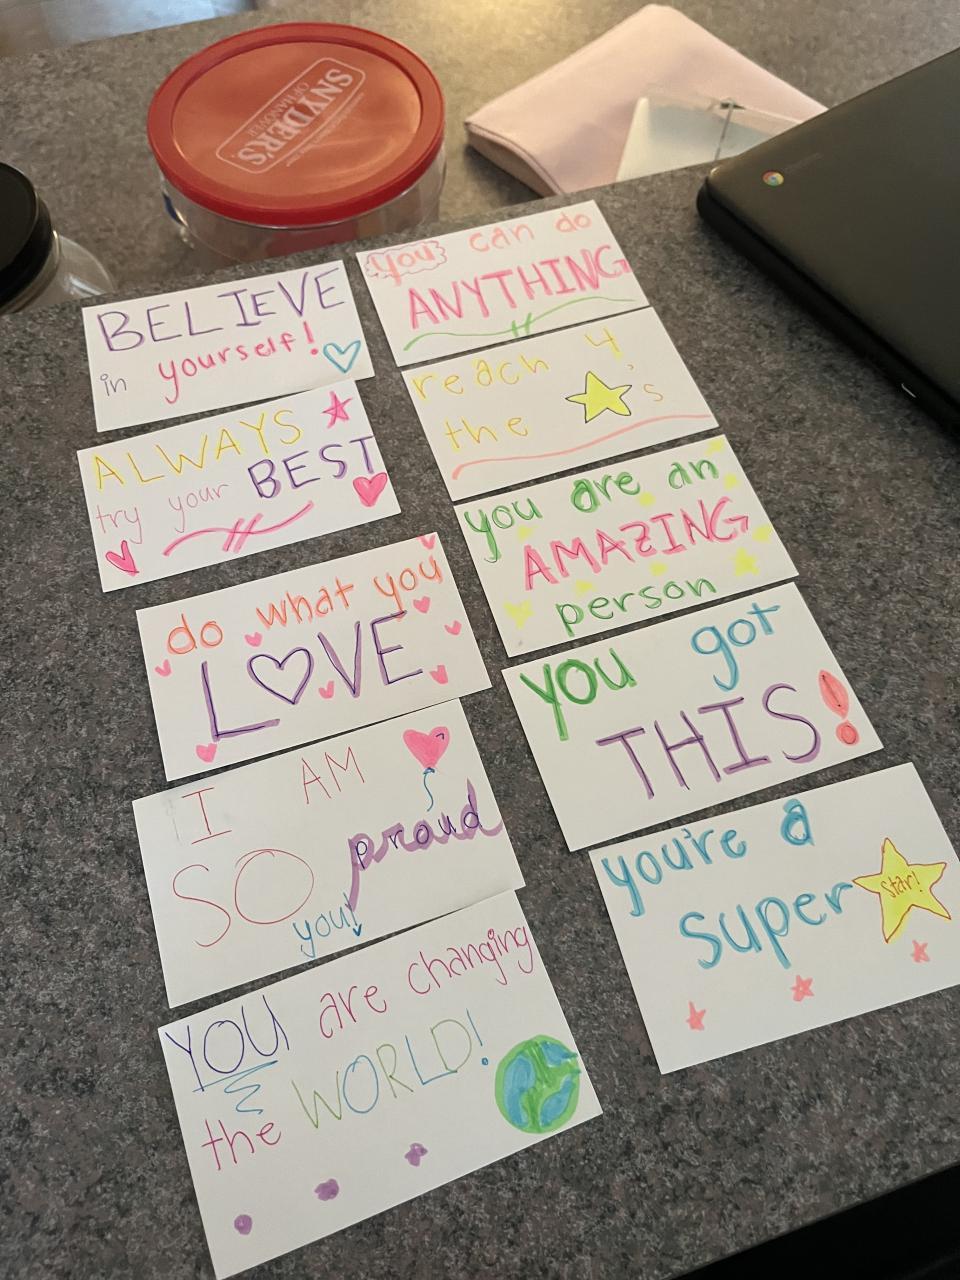 SNYDER'S
OF HANOVER
BELIEVE
in yourself!
ALWAYS
try your BEST
do what you
LOVE
I AM
SO proud
you!
YOU are changing
the WORLD!
you can do
ANYTHING
reach 4
the 's
you are an
AMAZING
person
you got
THIS!
you're a
super star!